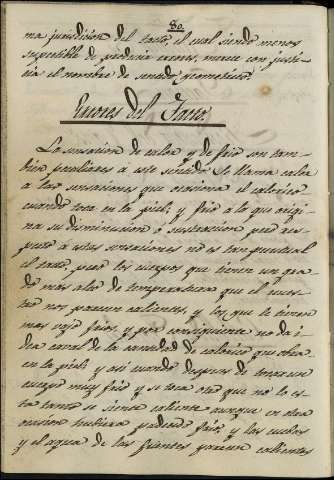 80.
ma jurisdicion del tacto, el cual siendo menos
suceptible de producir errores, merece con justi-
cia el nombre de sentido Geometrico.
Errores del Tacto.
La sensacion de calor y de frio son tam-
bien peculiares a este sentido. Se llama calor
a las sensaciones que ocasiona el calorico
cuando toca en la piel; y frio a lo que origi-
na su disminucion o sustraccion pero res-
pecto a estas sensaciones no es tan puntual
el tacto, pues los cuerpos que tienen un gra-
do mas alto de temperatura que el nues-
tro nos parecen calientes, y los que le tienen
mas vajo frios, y por consiguiente no da i-
dea caval de la cantidad de calorico que obra
en la piel; y asi cuando despues de tocar un
cuerpo muy frio y se toca otro que no lo es-
ta tanto se siente caliente aunque en otra
ocasion hubiera parecido frio, y las cuebas
y el agua de las fuentes parecen calientes